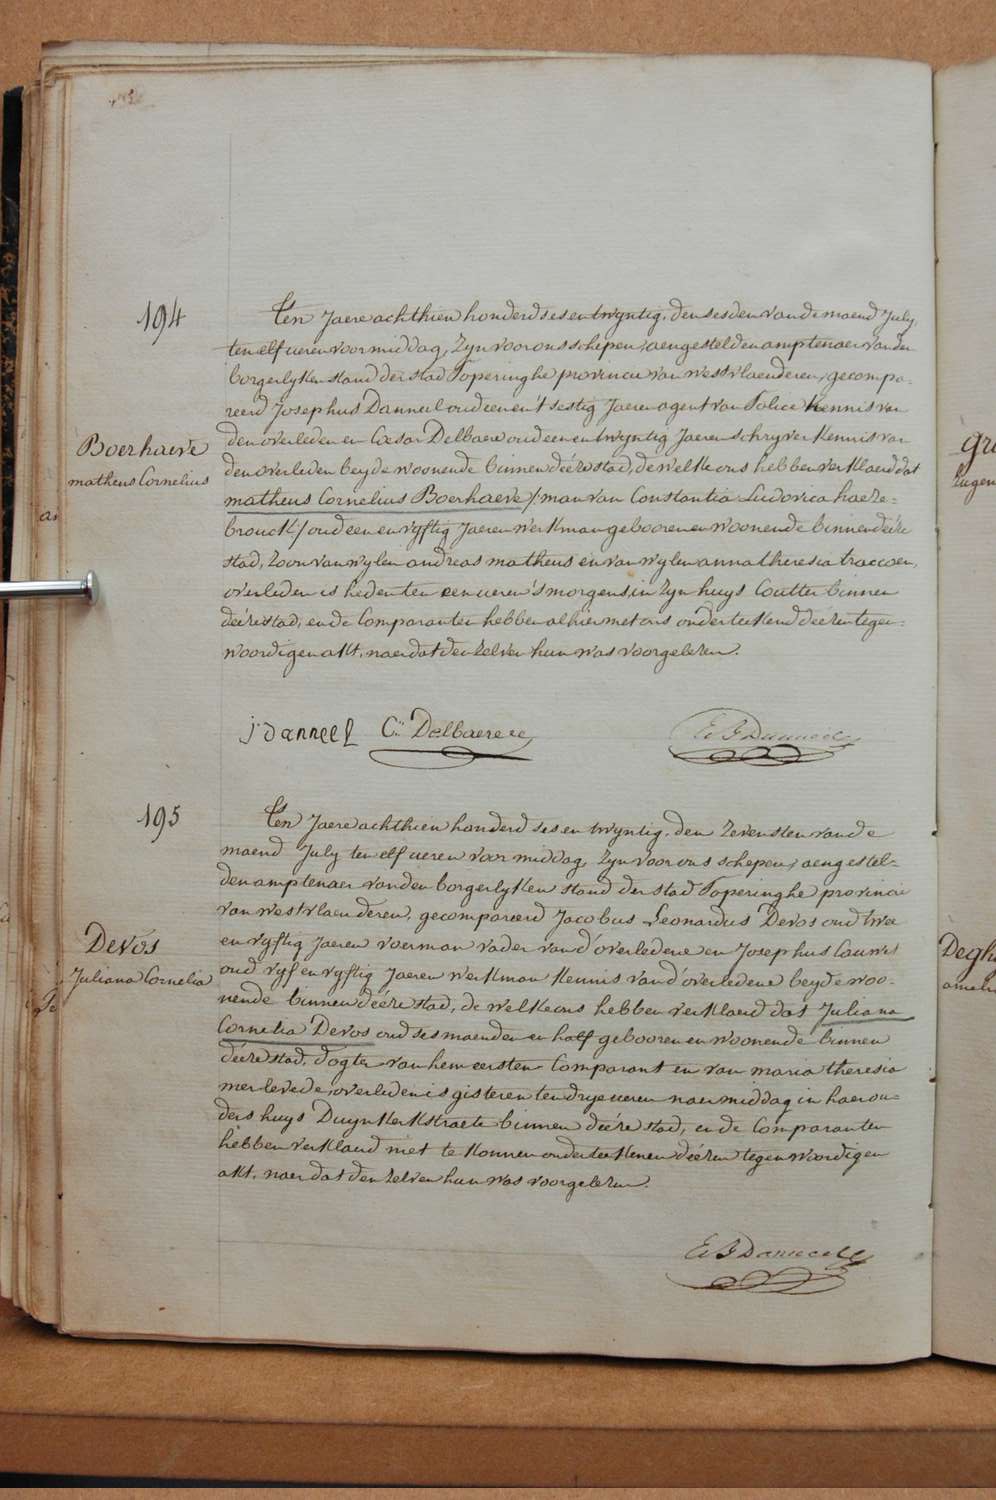 194
Ten Jaere achthien honderd ses en twyntig, den sesden van de maend July,
ten elf ueren voormiddag, Zyn voor ons schepen, aengestelden amptenaer van den
borgerlyken stand der stad Poperinghe provincie van westvlaenderen, gecompa-
reerd Josephus Danneel oud een en 't sestig Jaeren agent van Police kennis van
den overleden en Cæsar Delbaere oud een en twyntig Jaeren schryver kennis van
den overleden beyde woonende binnen déézestad, de welke ons hebben verklaerd dat
Boerhaeve
matheus Cornelius
matheus Cornelius Boerhaeve / man van Constantia Ludovica haeze-
brouck / oud een en vyftig Jaeren werkman gebooren en woonende binnen dééze
stad, Zoon van wylen andreas matheus en van wylen anna theresia traccoen,
overleden is heden ten een ueren 's morgens, in Zyn huys Coutter binnen
déézestad, en de Comparanten hebben alhier met ons onderteekend déézen tegen-
woordigen akt, naer dat den Zelven hun was voorgelezen.
j: danneel C:: Delbaere E. J Danneel
195
Ten Jaere achthien honderd ses en twyntig, den Zevensten van de
maend July ten elf ueren voormiddag, Zyn voor ons schepen, aengestel-
den amptenaer van den borgerlyken stand der stad Poperinghe provincie
van westvlaenderen, gecompareerd Jacobus Leonardus Devos oud twee
en vyftig Jaeren voerman vader van d'overledene en Josephus Cauwe
oud vyf en vyftig Jaeren werkman kennis van d'overledene beyde woo-
Devos
Juliana Cornelia
nende binnen déézestad, de welke ons hebben verklaerd dat Juliana
Cornelia Devos oud ses maenden en half gebooren en woonende binnen
déézestad, dogter van hem eersten Comparant en van maria theresia
merlevede, overleden is gisteren ten drye ueren naermiddag in haer ou-
ders huys Duynkerkstraete binnen dééze stad, en de Comparanten
hebben verklaerd niet te konnen onderteekenen déézen tegenwoordigen
akt, naer dat den Zelven hun was voorgelezen.
E. J Danneel